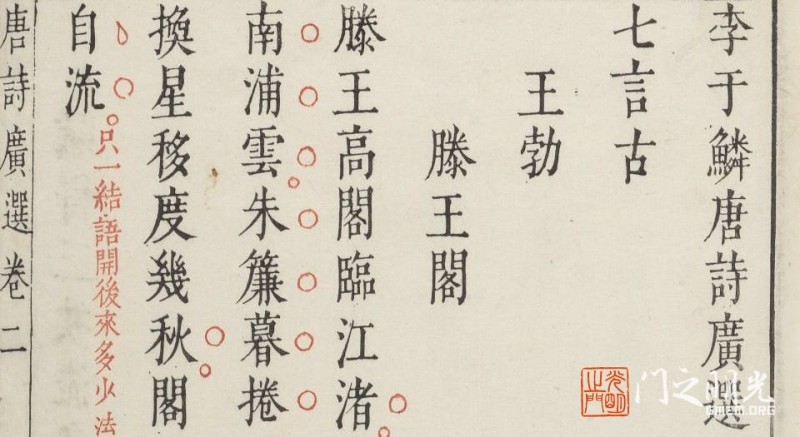 李于鱗唐詩廣選
七言古
王勃
滕王閣
滕王高閣臨江渚
南浦雲朱簾暮捲
換星移度幾秋閣
自流
只一結語開後來多少法
唐詩廣選 卷二
光明之門
光明之门
GMZM.ORG